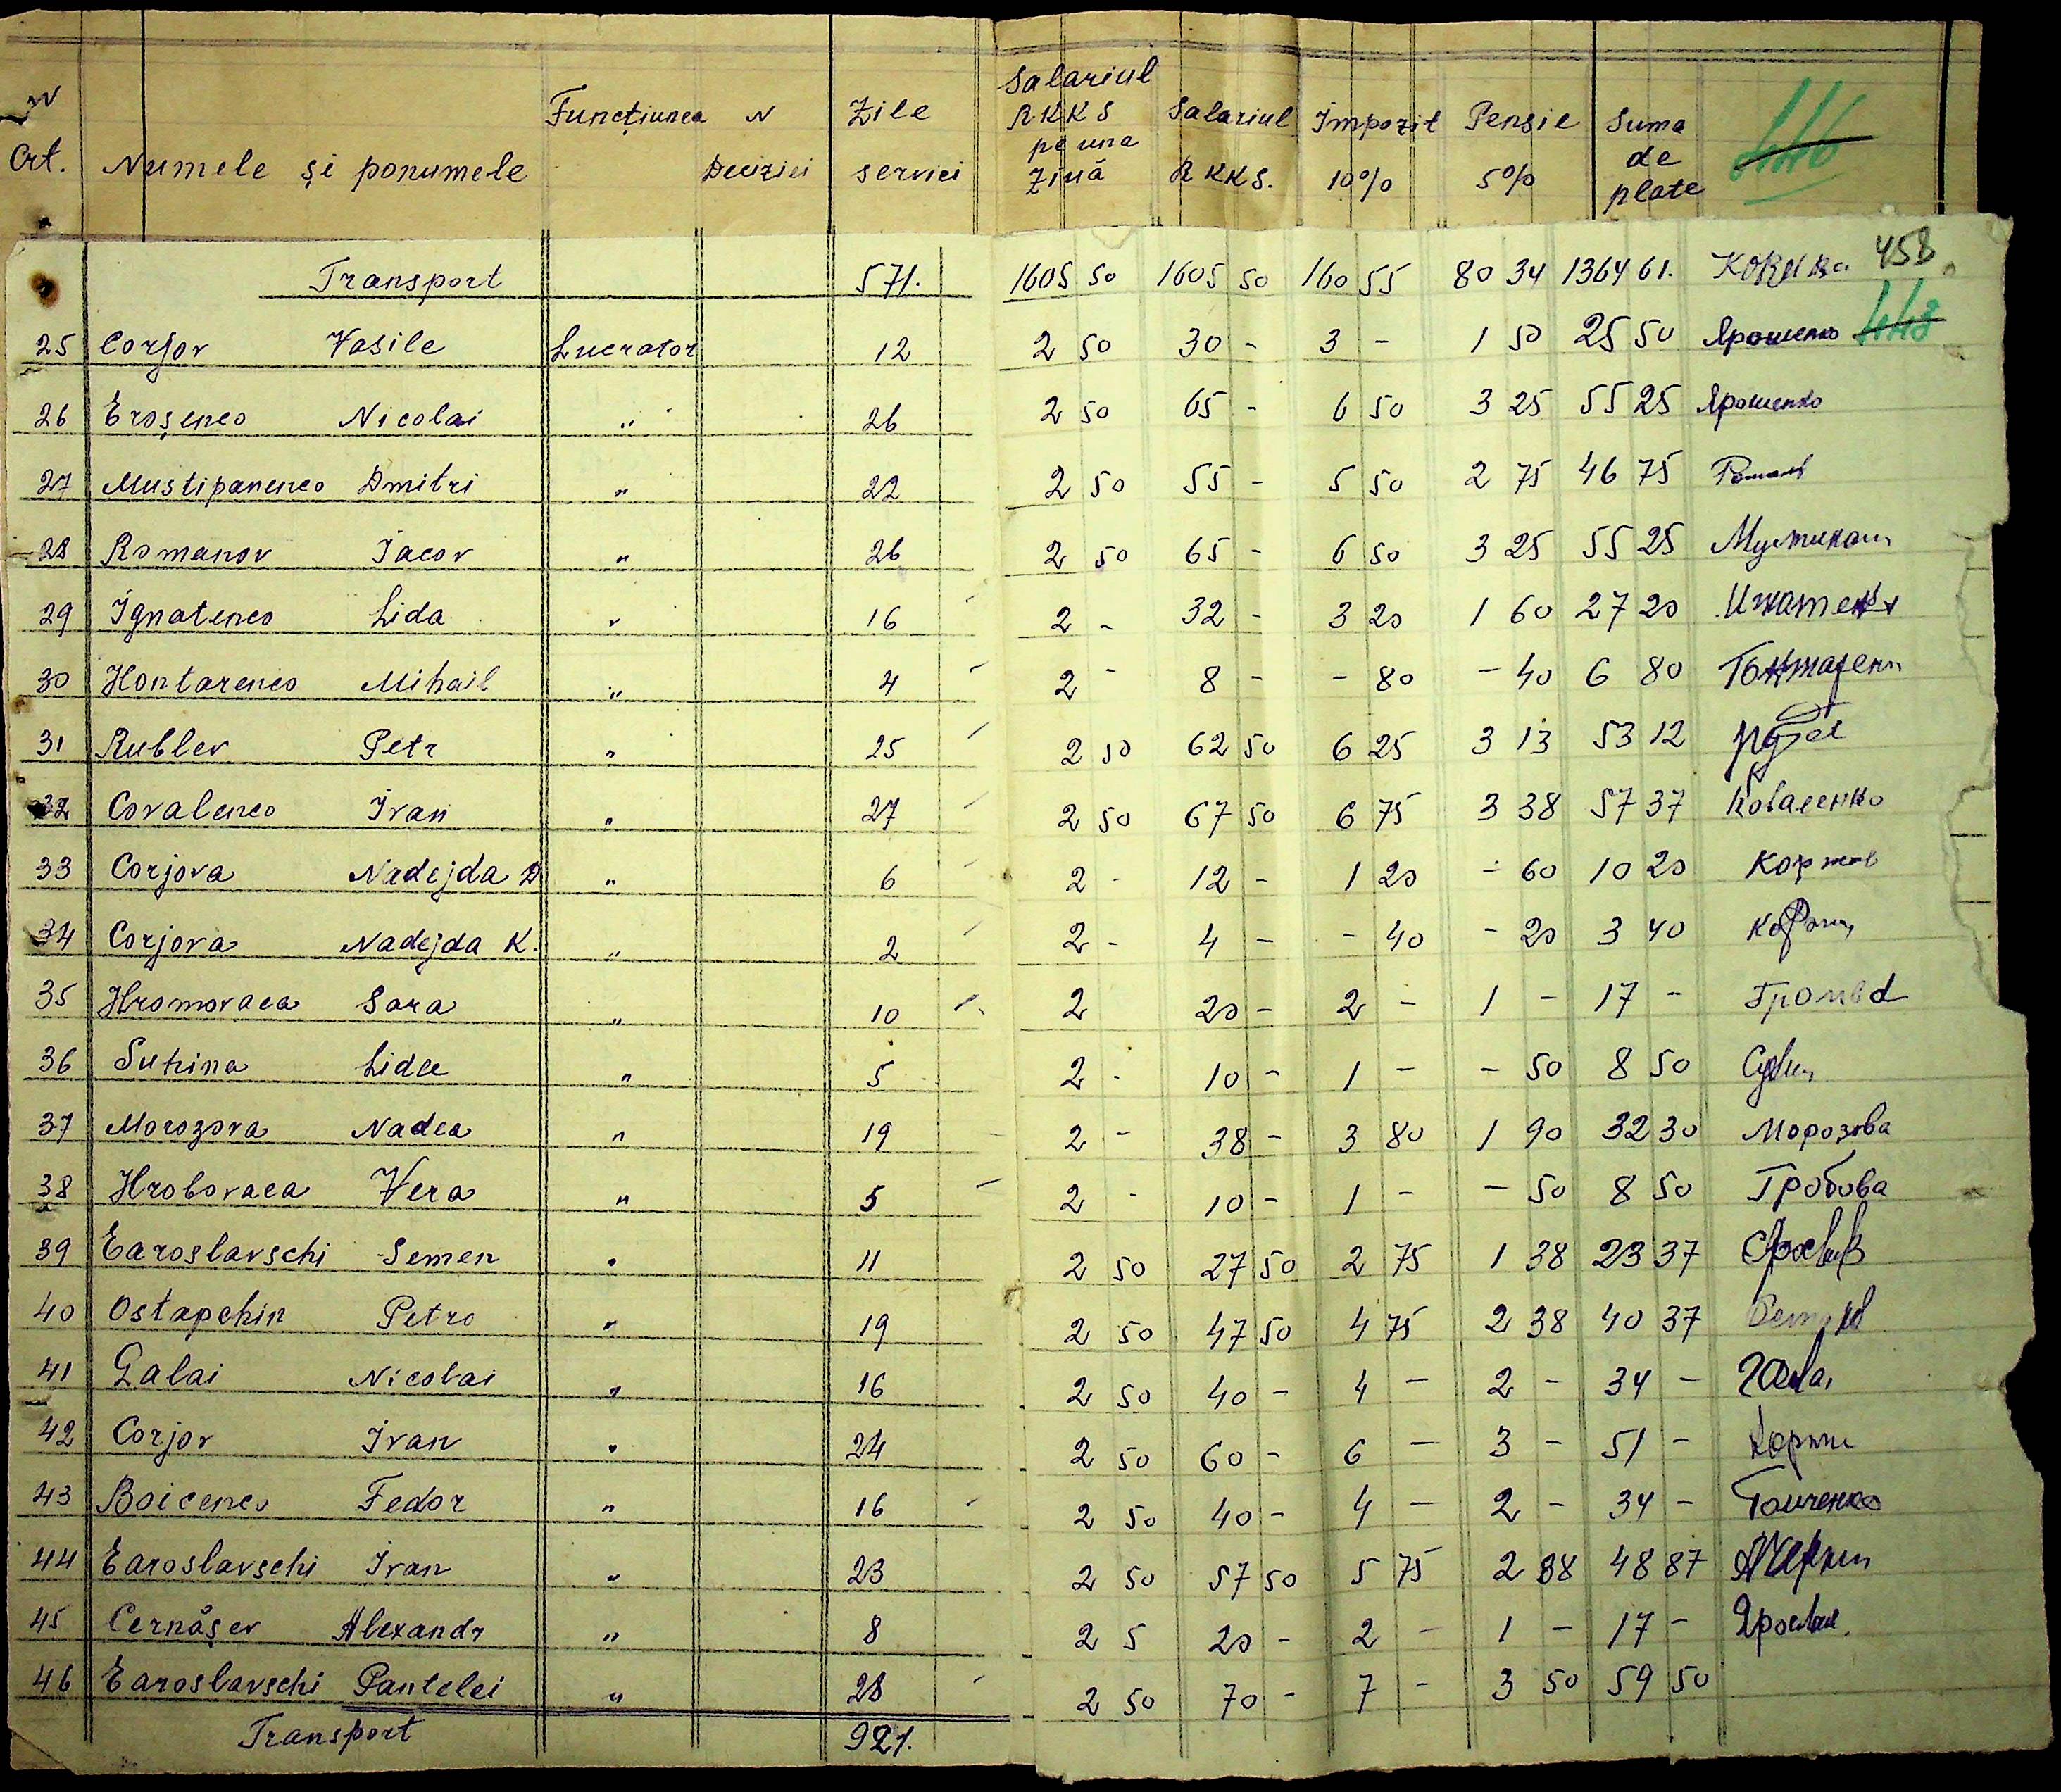 N Crt. Numele și ponumele Funcțiunea N Deciziei Zile servici Salariul RKKS pe una ziuă Salariul RKKS. Impozit 10% Pensie 5% Suma de plate 446
458
Transport 571. 1605 50 1605 50 160 55 80 34 1364 61.
448
25 Corjov Vasile Lucrator 12 2 50 30 - 3 - 1 50 25 50 Ярошенко
26 Eroșenco Nicolai " 26 2 50 65 - 6 50 3 25 55 25 Ярошенко
27 Mustipanenco Dmitri " 22 2 50 55 - 5 50 2 75 46 75 Романов
28 Romanov Iacov " 26 2 50 65 - 6 50 3 25 55 25
29 Ignatenco Lida " 16 2 - 32 - 3 20 1 60 27 20
30 Hontarenco Mihail " 4 2 - 8 - - 80 - 40 6 80
31 Rublev Petr " 25 2 50 62 50 6 25 3 13 53 12
32 Covalenco Ivan " 27 2 50 67 50 6 75 3 38 57 37 Коваленко
33 Corjova Nadejda D " 6 2 - 12 - 1 20 - 60 10 20 Коржов
34 Corjova Nadejda K. " 2 2 - 4 - - 40 - 20 3 40
35 Hromovaea Sara " 10 2 20 - 2 - 1 - 17 -
36 Suhina Lida " 5 2 - 10 - 1 - - 50 8 50
37 Morozova Nadea " 19 2 - 38 - 3 80 1 90 32 30 Морозова
38 Hrobovaea Vera " 5 2 - 10 - 1 - - 50 8 50 Гробова
39 Earoslavschi Semen " 11 2 50 27 50 2 75 1 38 23 37
40 Ostapchin Petro " 19 2 50 47 50 4 75 2 38 40 37
41 Galai Nicolai " 16 2 50 40 - 4 - 2 - 34 -
42 Corjov Ivan " 24 2 50 60 - 6 - 3 - 51 -
43 Boicenco Fedor " 16 2 50 40 - 4 - 2 - 34 -
44 Earoslavschi Ivan " 23 2 50 57 50 5 75 2 88 48 87
45 Cernășev Alexandr " 8 2 5 20 - 2 - 1 - 17 -
46 Earoslavschi Pantelei " 28 2 50 70 - 7 - 3 50 59 50
Transport 921.